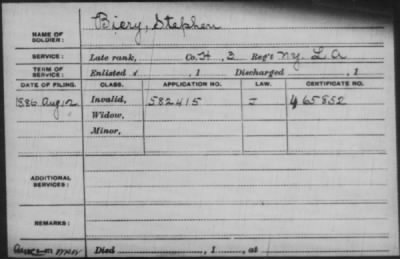 NAME OF SOLDIER: Biery, Stephen
SERVICE: Late rank, Co. H, 3 Reg't N.Y. L. A
TERM OF SERVICE: Enlisted , 1 Discharged , 1
DATE OF FILING. CLASS. APPLICATION NO. LAW. CERTIFICATE NO.
1886 Aug. 12 Invalid, 582415 465852
Widow,
Minor,
ADDITIONAL SERVICES:
REMARKS:
Died , 1 , at